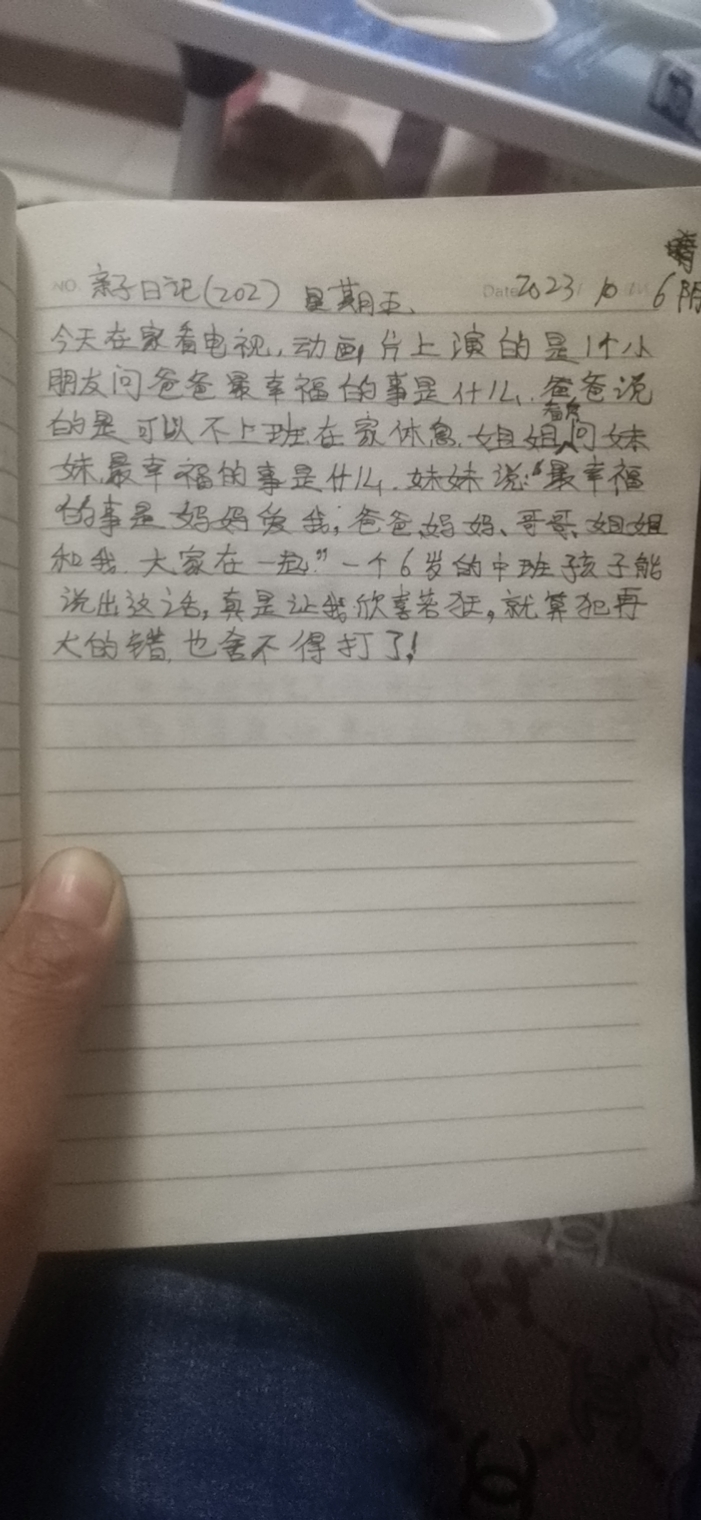 NO. 亲子日记(202) 星期五. Date 2023 10 6 阴
今天在家看电视,动画片上演的是1个小
朋友问爸爸最幸福的事是什么,爸爸说
的是可以不上班在家休息.姐姐问妹
妹最幸福的事是什么.妹妹说:“最幸福
的事是妈妈爱我,爸爸、妈妈、哥哥、姐姐
和我.大家在一起”一个6岁的中班孩子能
说出这话,真是让我欣喜若狂,就算犯再
大的错,也舍不得打了!